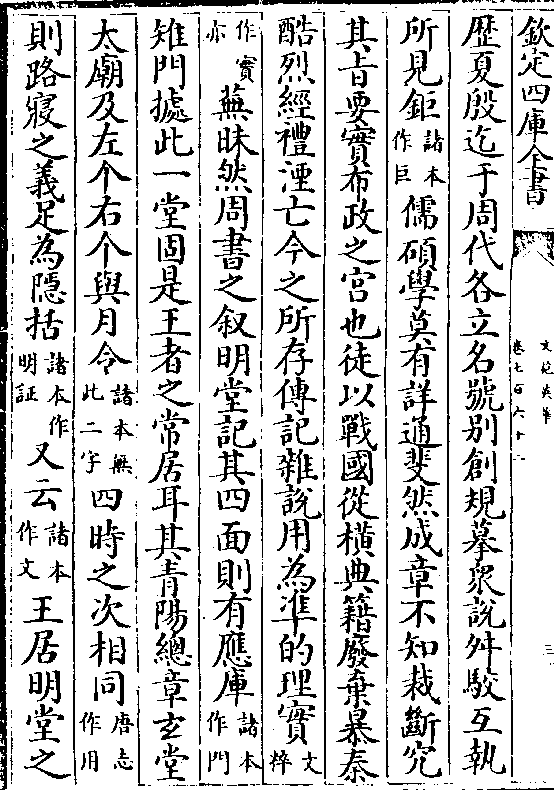 欽定四庫全書
文苑英華
卷七百六十二
三
歷夏殷迄于周代各立名號别創規摹衆說舛駁互執
所見鉅諸本作巨儒碩學莫有詳通斐然成章不知裁斷究
其旨要實布政之宫也徒以戰國從橫典籍廢棄暴秦
酷烈經禮湮亡今之所存傳記雜說用為準的理實文粹
作實亦蕪昧然周書之叙明堂記其四面則有應庫諸本作門
雉門據此一堂固是王者之常居耳其青陽總章玄堂
太廟及左个右个與月令諸本無此二字四時之次相同唐志作用
則路寢之義足為隱括諸本作明証又云諸本作文王居明堂之